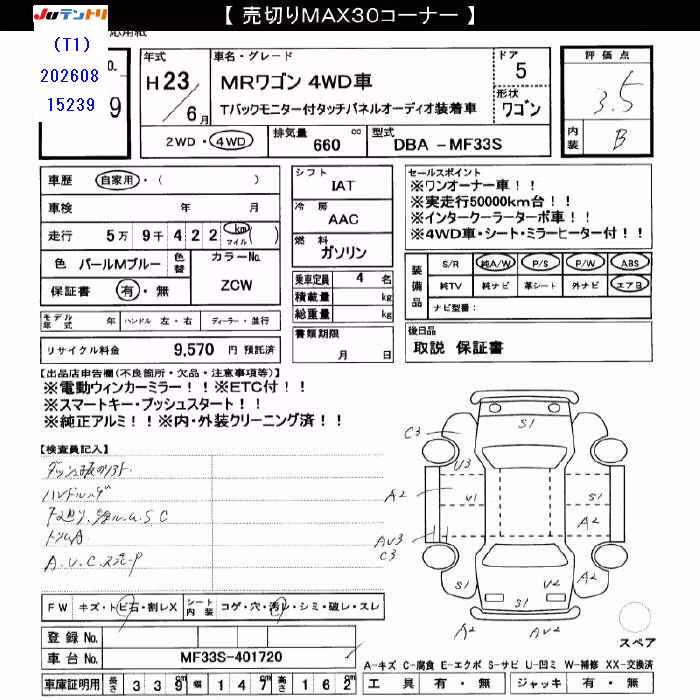 JUテントリ
【 売切りMAX30コーナー 】
(T1)
202608
15239
9
年式
H23/6月
車名・グレード
MRワゴン 4WD車
Tバックモニター付タッチパネルオーディオ装着車
ドア 5
形状 ワゴン
評価点
3.5
内装 B
2WD・4WD
排気量 660 cc
型式 DBA -MF33S
車歴 自家用・( )
車検 年 月
走行 5万 9千 4 2 2 km マイル ( )
色 パールMブルー 色替
カラーNo. ZCW
保証書 有・無
シフト IAT
冷房 AAC
燃料 ガソリン
乗車定員 4 名
積載量 kg
総重量 kg
書類期限
月 日
セールスポイント
※ワンオーナー車!!
※実走行50000km台!!
※インタークーラーターボ車!!
※4WD車・シート・ミラーヒーター付!!
装備品
S/R 純A/W P/S P/W ABS
純TV 純ナビ 革シート 外ナビ エアB
ナビ型番:
モデル年式 年 ハンドル 左・右 ディーラー・並行
リサイクル料金 9,570 円 預託済
後日品
取説 保証書
【出品店申告欄(不良箇所・欠品・注意事項等)】
※電動ウィンカーミラー!!※ETC付!!
※スマートキー・プッシュスタート!!
※純正アルミ!!※内・外装クリーニング済!!
【検査員記入】
ハンドル
S C
A.U.C
FW キズ・トビ石・割レX シート内装 コゲ・穴・汚レ・シミ・破レ・スレ
登録 No.
車台 No. MF33S-401720
車庫証明用 長さ 3 3 9 cm 幅 1 4 7 cm 高さ 1 6 2 cm
C3
S1
U3
A2
U1
S1
A2
AU3
C3
S1
U2
A2
S1
A2
AU2
スペア
A-キズ C-腐食 E-エクボ S-サビ U-凹ミ W-補修 XX-交換済
工具 有・無 ジャッキ 有・無